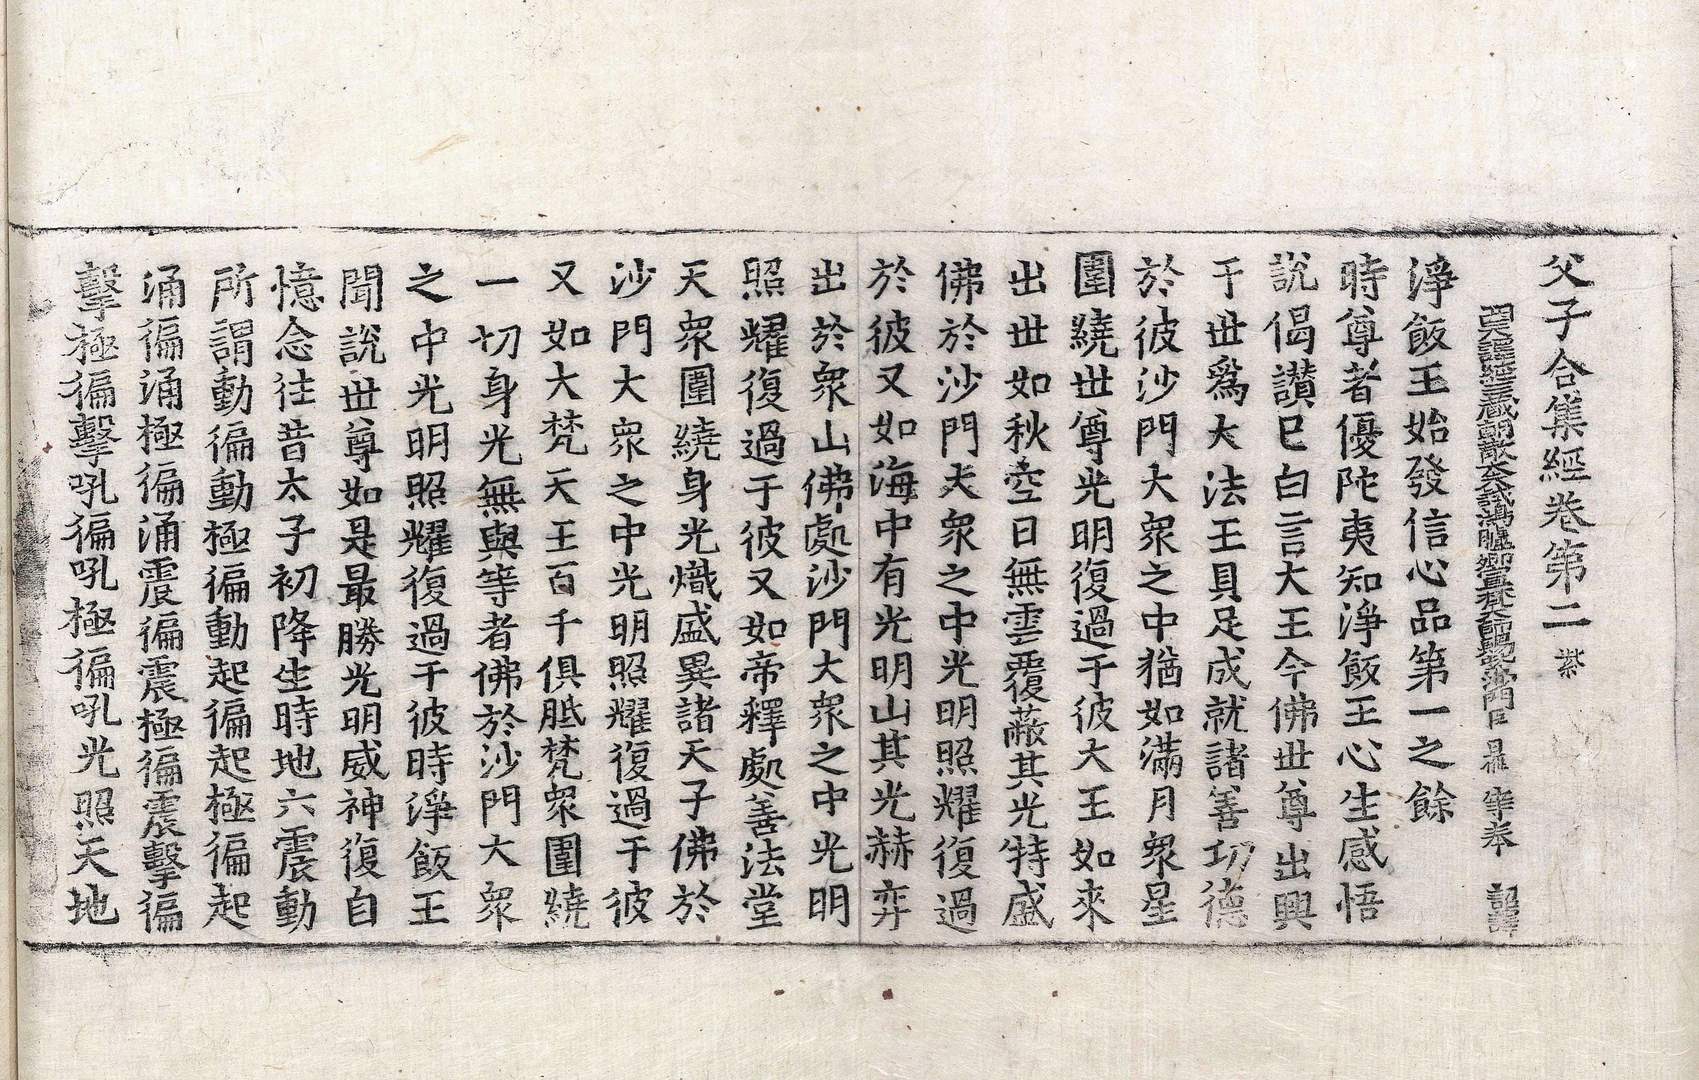 父子合集經卷第二 紫
西天譯經三藏朝散大夫試鴻臚卿宣梵大師賜紫沙門臣日稱等奉 詔譯
淨飯王始發信心品第一之餘
時尊者優陀夷知淨飯王心生感悟
說偈讃已白言大王今佛世尊出興
于世爲大法王具足成就諸善功德
於彼沙門大衆之中猶如滿月衆星
圍繞世尊光明復過于彼大王如來
出世如秋空日無雲覆蔽其光特盛
佛於沙門大衆之中光明照耀復過
於彼又如海中有光明山其光赫弈
出於衆山佛處沙門大衆之中光明
照耀復過于彼又如帝釋處善法堂
天衆圍繞身光熾盛異諸天子佛於
沙門大衆之中光明照耀復過于彼
又如大梵天王百千俱胝梵衆圍繞
一切身光無與等者佛於沙門大衆
之中光明照耀復過于彼時淨飯王
聞說世尊如是最勝光明威神復自
憶念往昔太子初降生時地六震動
所謂動徧動極徧動起徧起極徧起
涌徧涌極徧涌震徧震極徧震擊徧
擊極徧擊吼徧吼極徧吼光照天地